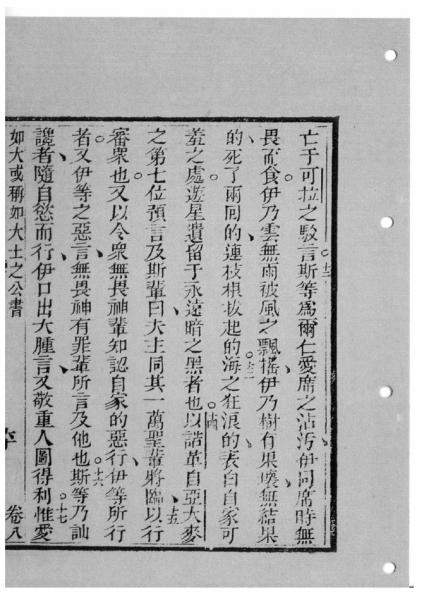 亡于可拉之駁言斯等爲爾仁愛席之沾汚伊同席時無
畏而食伊乃雲無雨被風之飄搖伊乃樹有果壞無結果
的死了兩囘的連枝根拔起的海之狂浪的表白自家可
羞之處遊星遺留于永遠暗之黑者也以諾革自亞大麥
之第七位預言及斯輩曰夫主同其一萬聖輩將臨以行
審衆也又以令衆無畏神輩知認自家的惡行伊等所行
者又伊等之惡言無畏神有罪輩所言及他也斯等乃訕
讒者隨自慾而行伊口出大腫言又敬重人圖得利惟愛
如大或稱如大士之公書
卷八